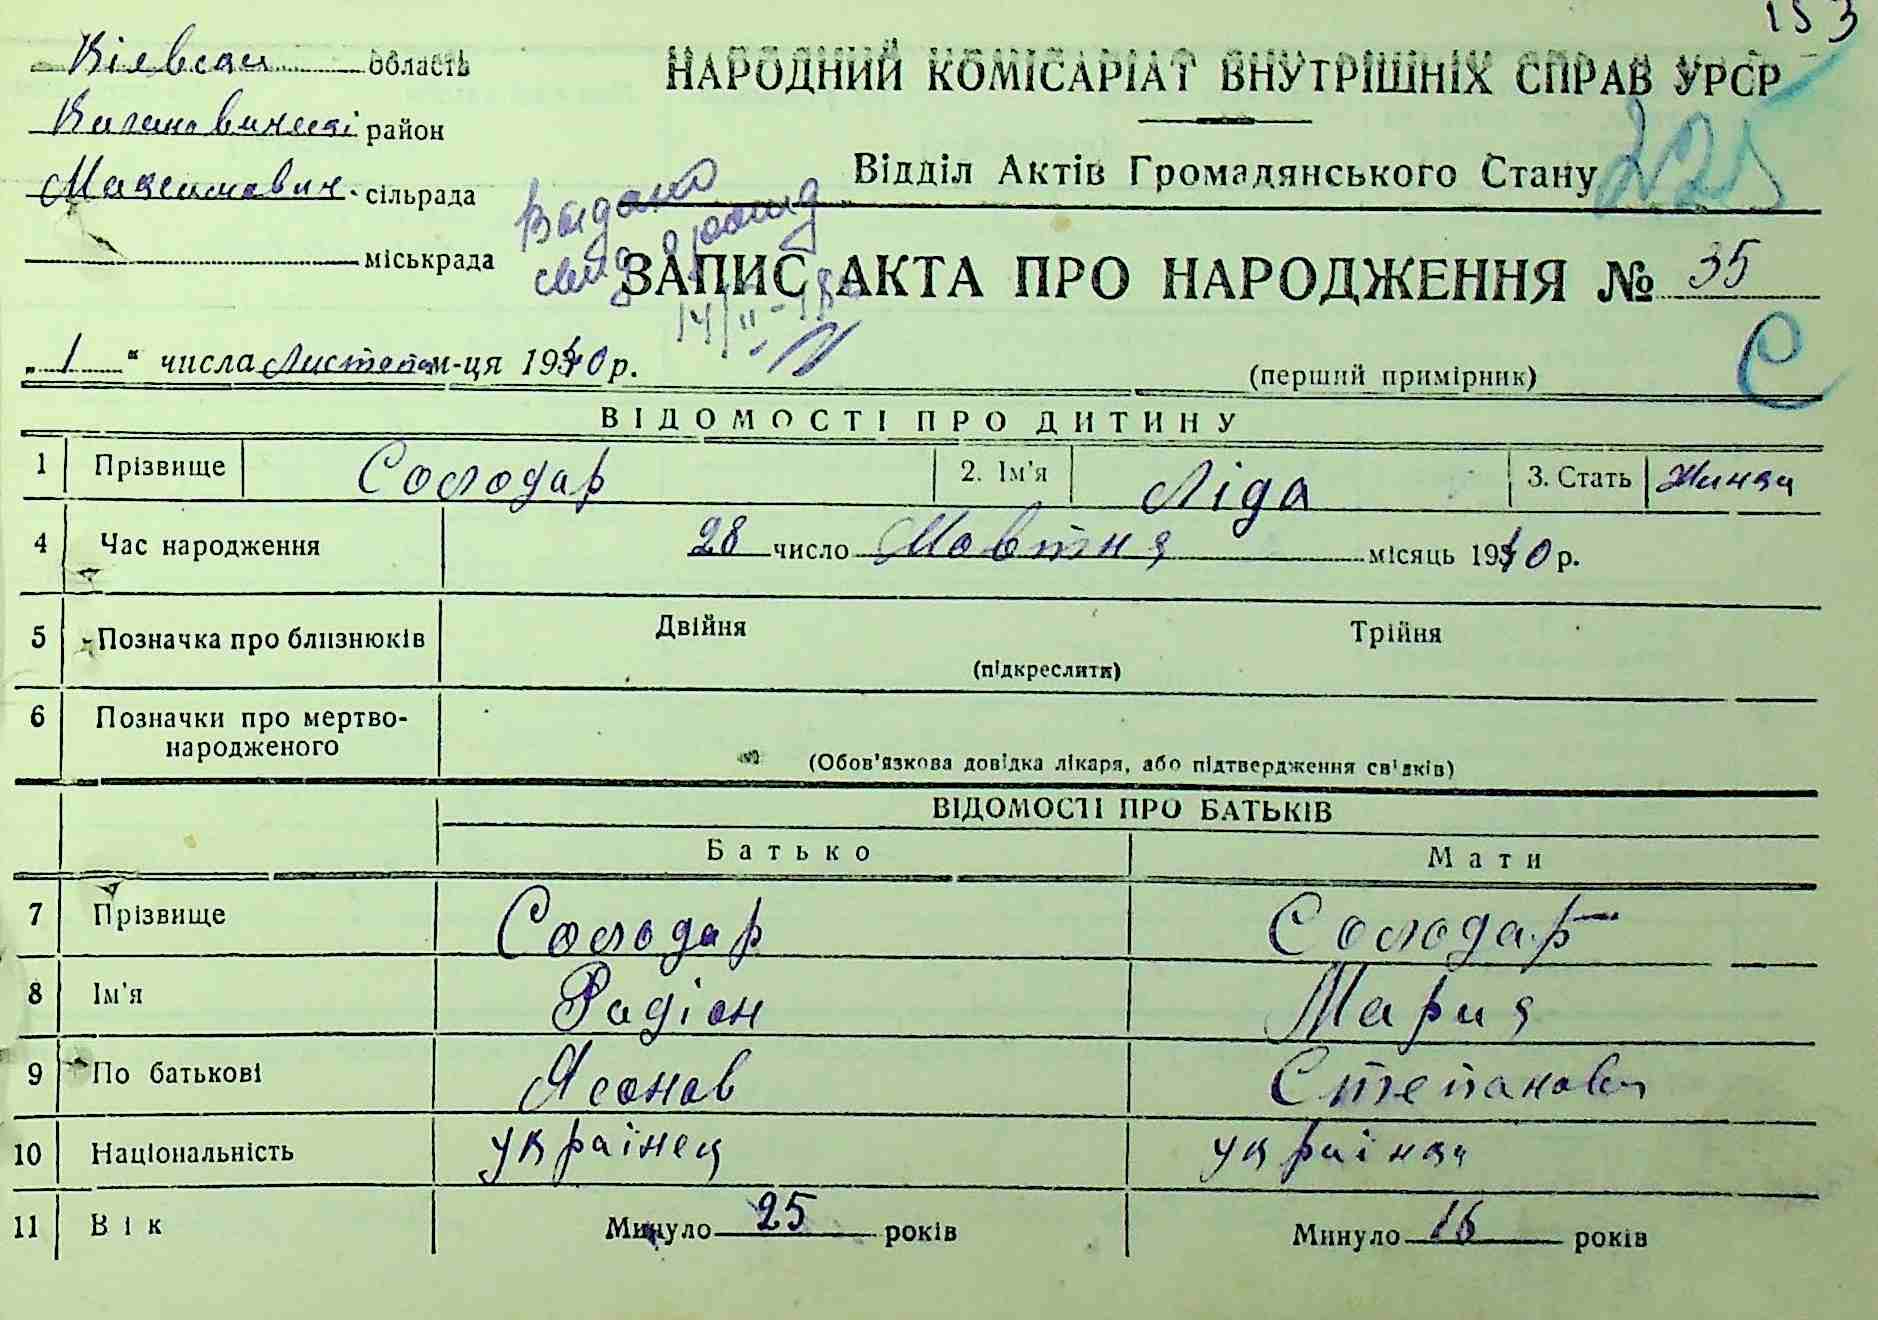 153
Кіевская область
НАРОДНИЙ КОМІСАРІАТ ВНУТРІШНІХ СПРАВ УРСР
Кагановическі район
225
Відділ Актів Громадянського Стану
Максимович. сільрада
міськрада
Видано
свид
ЗАПИС АКТА ПРО НАРОДЖЕННЯ № 35
14/II-
„1“ числа Листопа м-ця 1940 р.
(перший примірник)
С
ВІДОМОСТІ ПРО ДИТИНУ
1 Прізвище Солодар 2. Ім'я Ліда 3. Стать
4 Час народження 28 число Жовтня місяць 1940 р.
5 Позначка про близнюків Двійня Трійня
(підкреслити)
6 Позначки про мертво-
народженого
(Обов'язкова довідка лікаря, або підтвердження свідків)
ВІДОМОСТІ ПРО БАТЬКІВ
Батько Мати
7 Прізвище Солодар Солодар
8 Ім'я Радіон Мария
9 По батькові Ясонов Степанов
10 Національність українец українка
11 Вік Минуло 25 років Минуло років